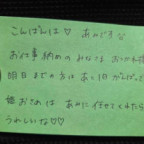 こんばんは♡ あんです☺
お仕事納めのみなさま おつかれ様
明日までの方は あと1日がんばって
姫おさめは あんに任せてくれたら
うれしいな♡♡